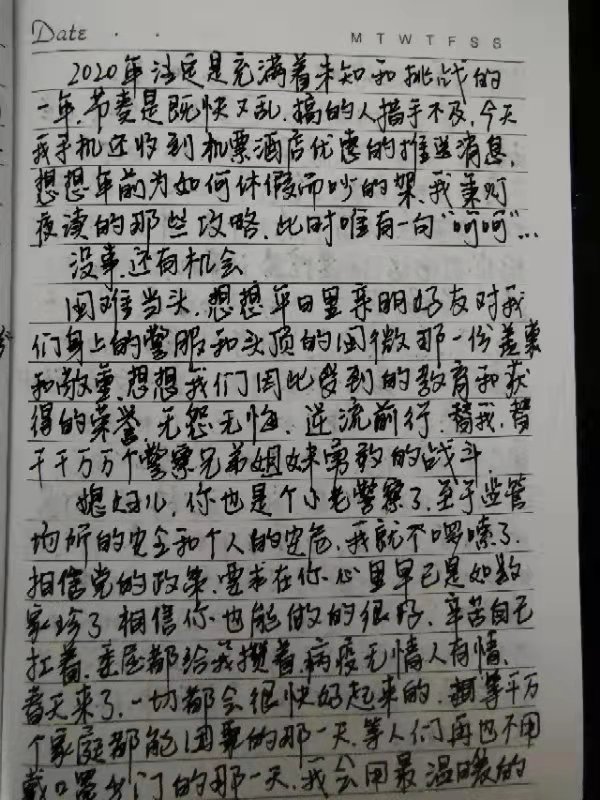 Date
M T W T F S S
2020年注定是充满着未知和挑战的
一年,节奏是既快又乱,搞的人措手不及,今天
我手机还收到机票酒店优惠的推送消息,
想想年前为如何休假而吵的架,我秉灯
夜读的那些攻略,此时唯有一句“呵呵”...
没事,还有机会
国难当头,想想平日里亲朋好友对我
们身上的警服和头顶的国徽那一份羡慕
和敬重,想想我们因此受到的教育和获
得的荣誉 无怨无悔,逆流前行,替我,替
千千万万个警察兄弟姐妹勇敢的战斗.
媳妇儿,你也是个小老警察了,至于监管
场所的安全和个人的安危,我就不啰嗦了.
相信党的政策,要求在你心里早已是如数
家珍了 相信你也能做的很好,辛苦自己
扛着,委屈都给我攒着,病疫无情人有情,
春天来了,一切都会很快好起来的,等千万
个家庭都能团聚的那一天,等人们再也不用
戴口罩出门的那一天,我会用最温暖的